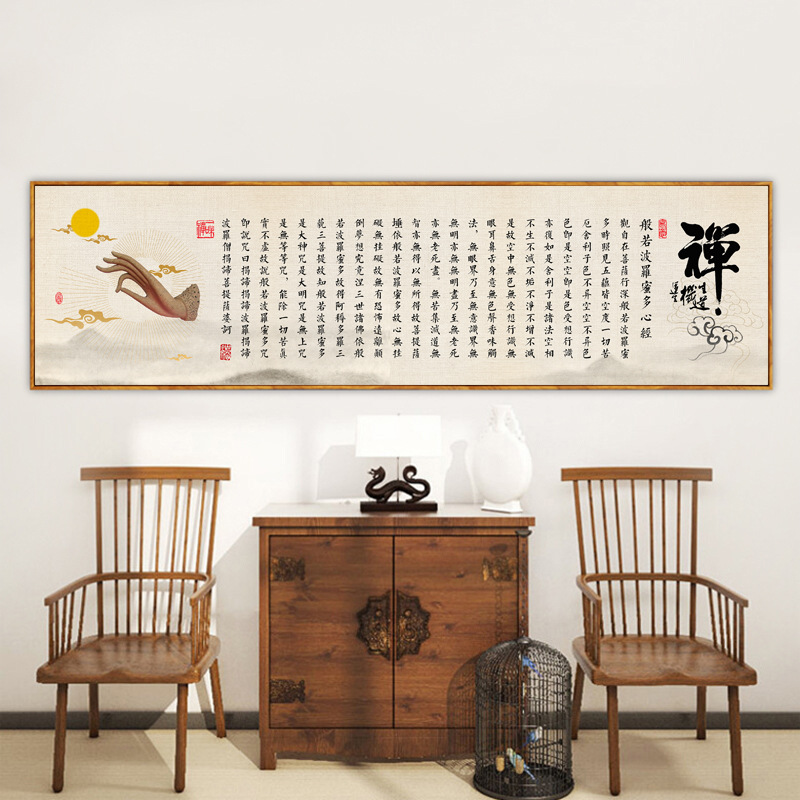 禪
般若波羅蜜多心經
觀自在菩薩行深般若波羅蜜
多時照見五蘊皆空度一切苦
厄舍利子色不異空空不異色
色即是空空即是色受想行識
亦復如是舍利子是諸法空相
不生不滅不垢不淨不增不減
是故空中無色無受想行識無
眼耳鼻舌身意無色聲香味觸
法，無眼界乃至無意識界無
無明亦無無明盡乃至無老死
亦無老死盡。無苦集滅道無
智亦無得以無所得故菩提薩
埵依般若波羅蜜多故心無挂
礙無挂礙故無有恐怖遠離顛
倒夢想究竟涅三世諸佛依般
若波羅蜜多故得阿耨多羅三
藐三菩提故知般若波羅蜜多
是大神咒是大明咒是無上咒
是無等等咒，能除一切苦真
實不虛故說般若波羅蜜多咒
即說咒曰揭諦揭諦波羅揭諦
波羅僧揭諦菩提薩婆訶